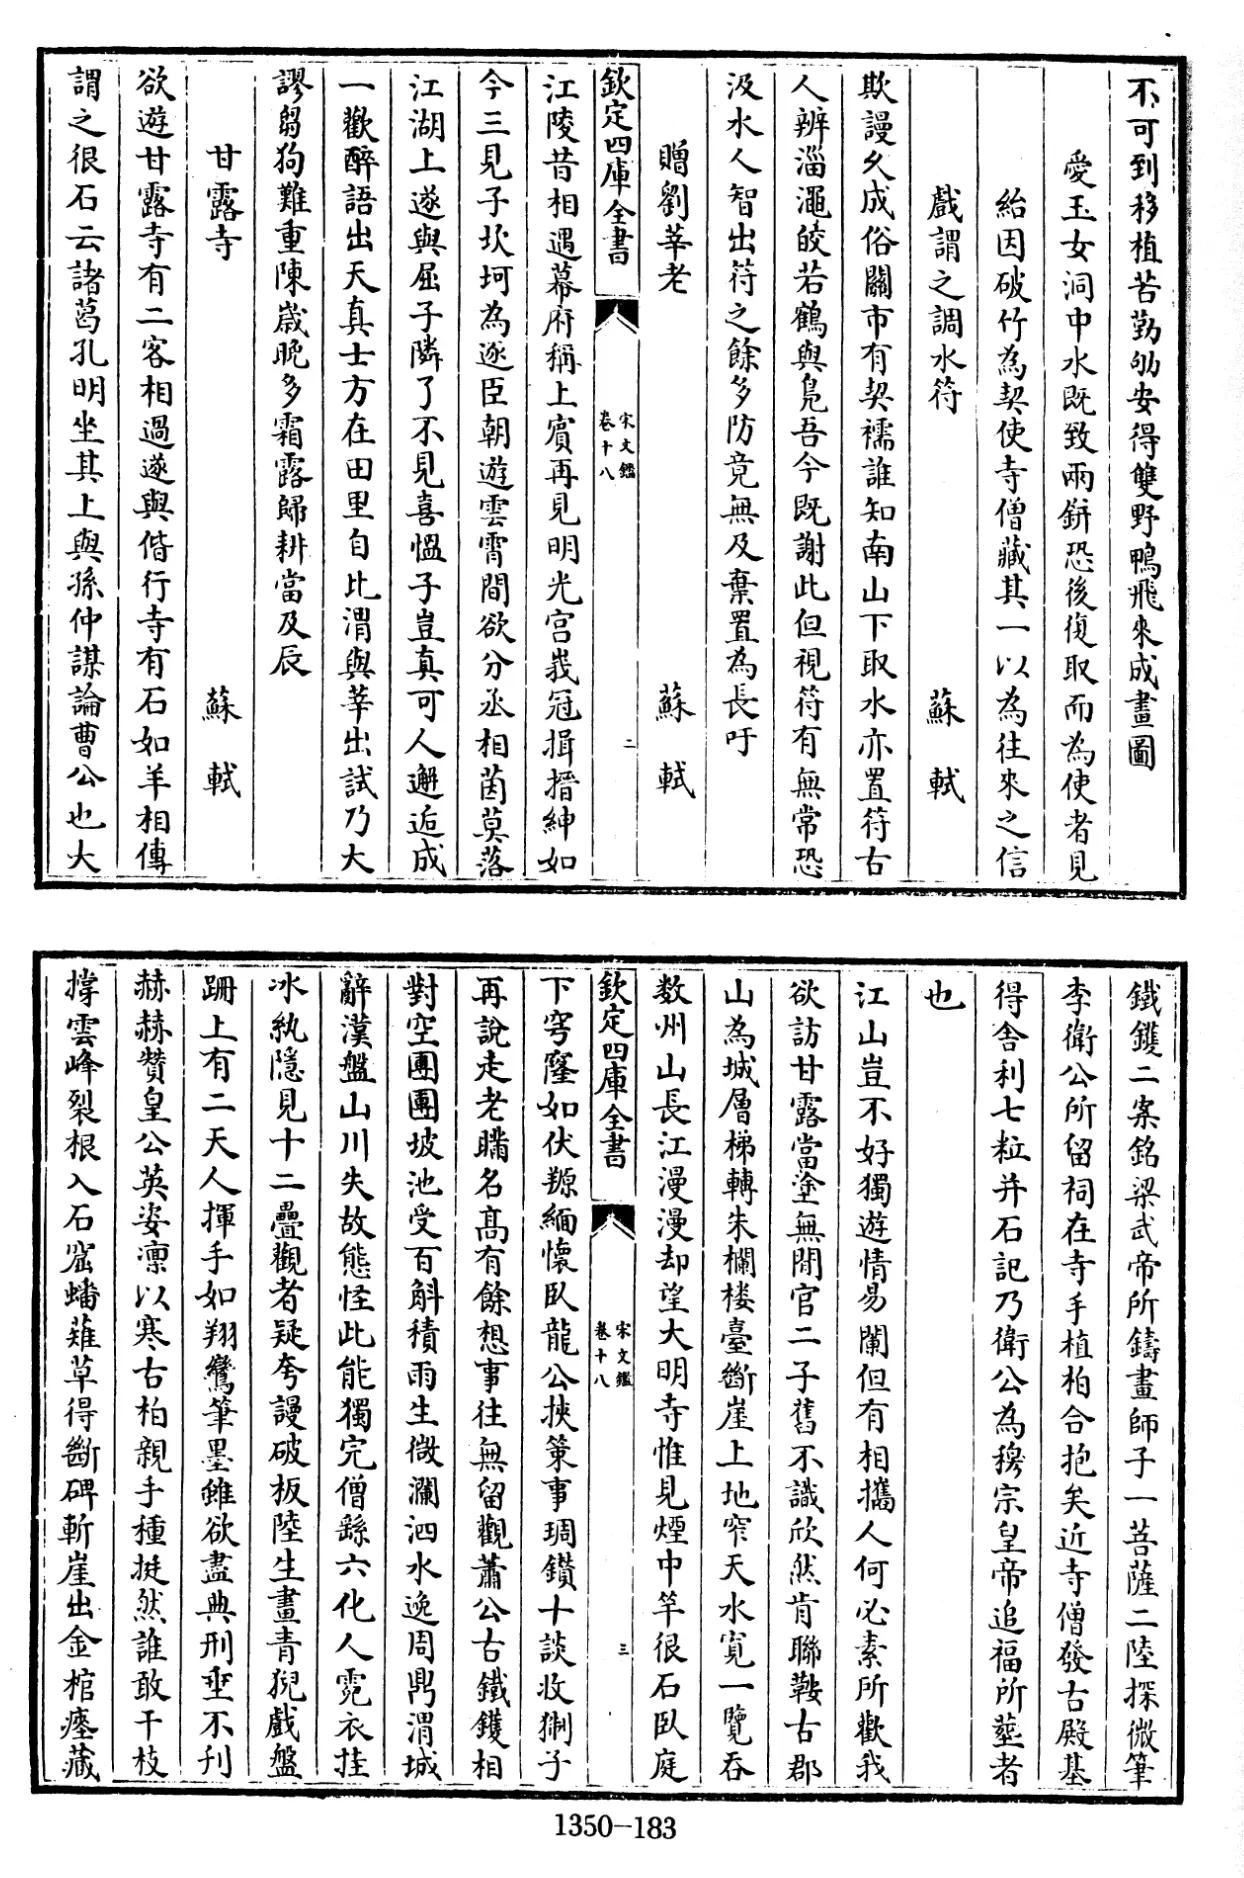 不可到移植苦勤劬安得雙野鴨飛來成畫圖
愛玉女洞中水既致兩缾恐後復取而為使者見
紿因破竹為契使寺僧藏其一以為往來之信
戲謂之調水符 蘇軾
欺謾久成俗關市有契繻誰知南山下取水亦置符古
人辨淄澠皎若鶴與鳧吾今既謝此但視符有無常恐
汲水人智出符之餘多防竟無及棄置為長吁
贈劉莘老 蘇軾
欽定四庫全書
宋文鑑
卷十八
二
江陵昔相遇幕府稱上賓再見明光宫峩冠揖搢紳如
今三見子坎坷為逐臣朝遊雲霄間欲分丞相茵莫落
江湖上遂與屈子隣了不見喜愠子豈真可人邂逅成
一歡醉語出天真士方在田里自比渭與莘出試乃大
謬芻狗難重陳歳晩多霜露歸耕當及辰
甘露寺 蘇軾
欲遊甘露寺有二客相過遂與偕行寺有石如羊相傳
謂之很石云諸葛孔明坐其上與孫仲謀論曹公也大
鐵鑊二案銘梁武帝所鑄畫師子一菩薩二陸探微筆
李衛公所留祠在寺手植柏合抱矣近寺僧發古殿基
得舍利七粒并石記乃衛公為穆宗皇帝追福所塟者
也
江山豈不好獨遊情易闌但有相攜人何必素所歡我
欲訪甘露當塗無閒官二子舊不識欣然肯聯鞍古郡
山為城層梯轉朱欄樓臺斷崖上地窄天水寛一覽吞
数州山長江漫漫却望大明寺惟見煙中竿很石臥庭
欽定四庫全書
宋文鑑
卷十八
三
下穹窿如伏羱緬懷臥龍公挾策事琱鑽一談收猘子
再說走老瞞名髙有餘想事往無留觀蕭公古鐵鑊相
對空團團坡池受百斛積雨生微瀾泗水逸周鼎渭城
辭漢盤山川失故態怪此能獨完僧繇六化人霓衣挂
冰紈隱見十二疊觀者疑夸謾破板陸生畫青猊戲盤
跚上有二天人揮手如翔鸞筆墨雖欲盡典刑垂不刋
赫赫贊皇公英姿凛以寒古柏親手種挺然誰敢干枝
撐雲峰裂根入石窟蟠薙草得斷碑斬崖出金棺瘞藏
1350-183